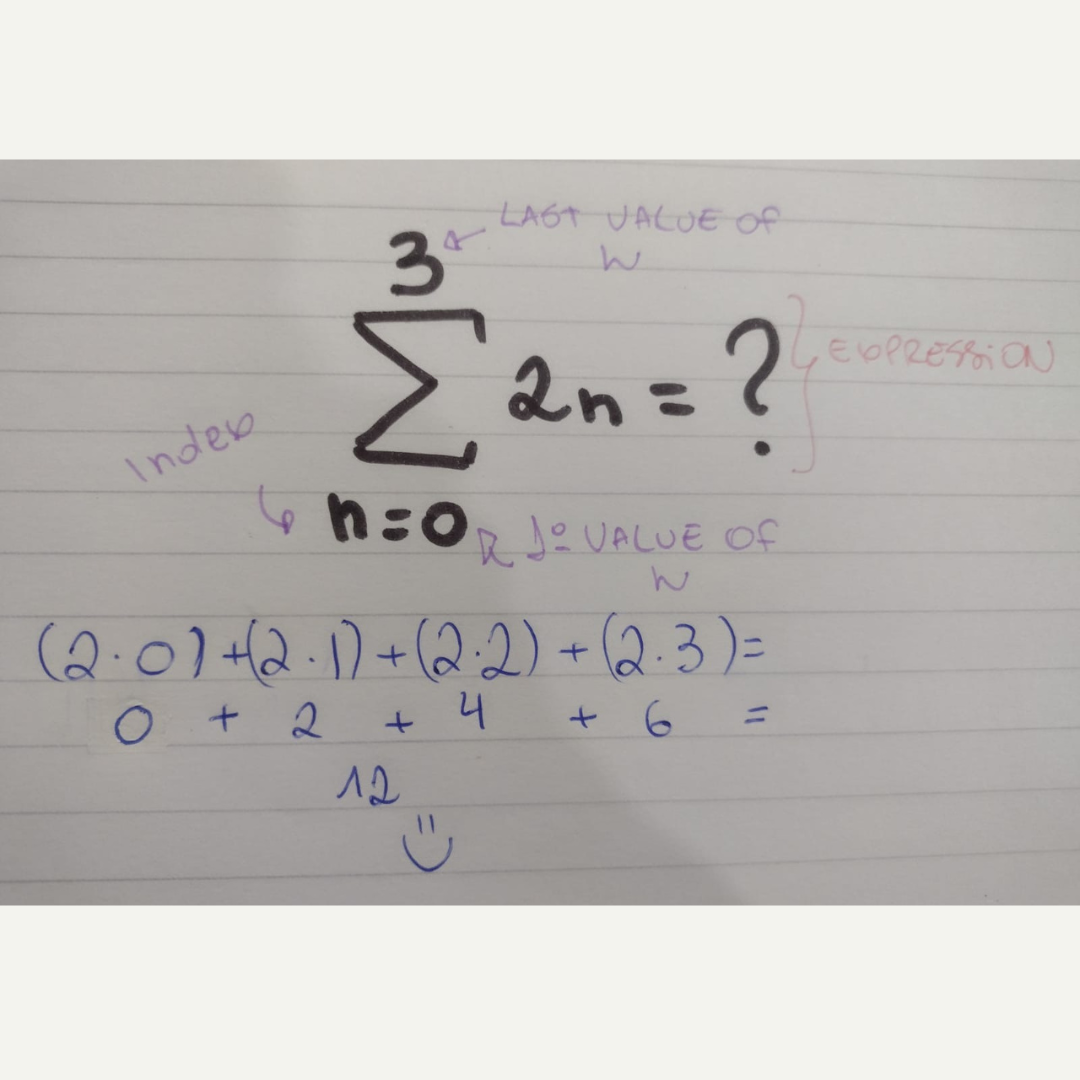 LAST VALUE OF
n
3
∑ 2n = ?
} EXPRESSION
index
n=0
1º VALUE OF
n
(2·0)+(2·1)+(2·2)+(2·3)=
0 + 2 + 4 + 6 =
12